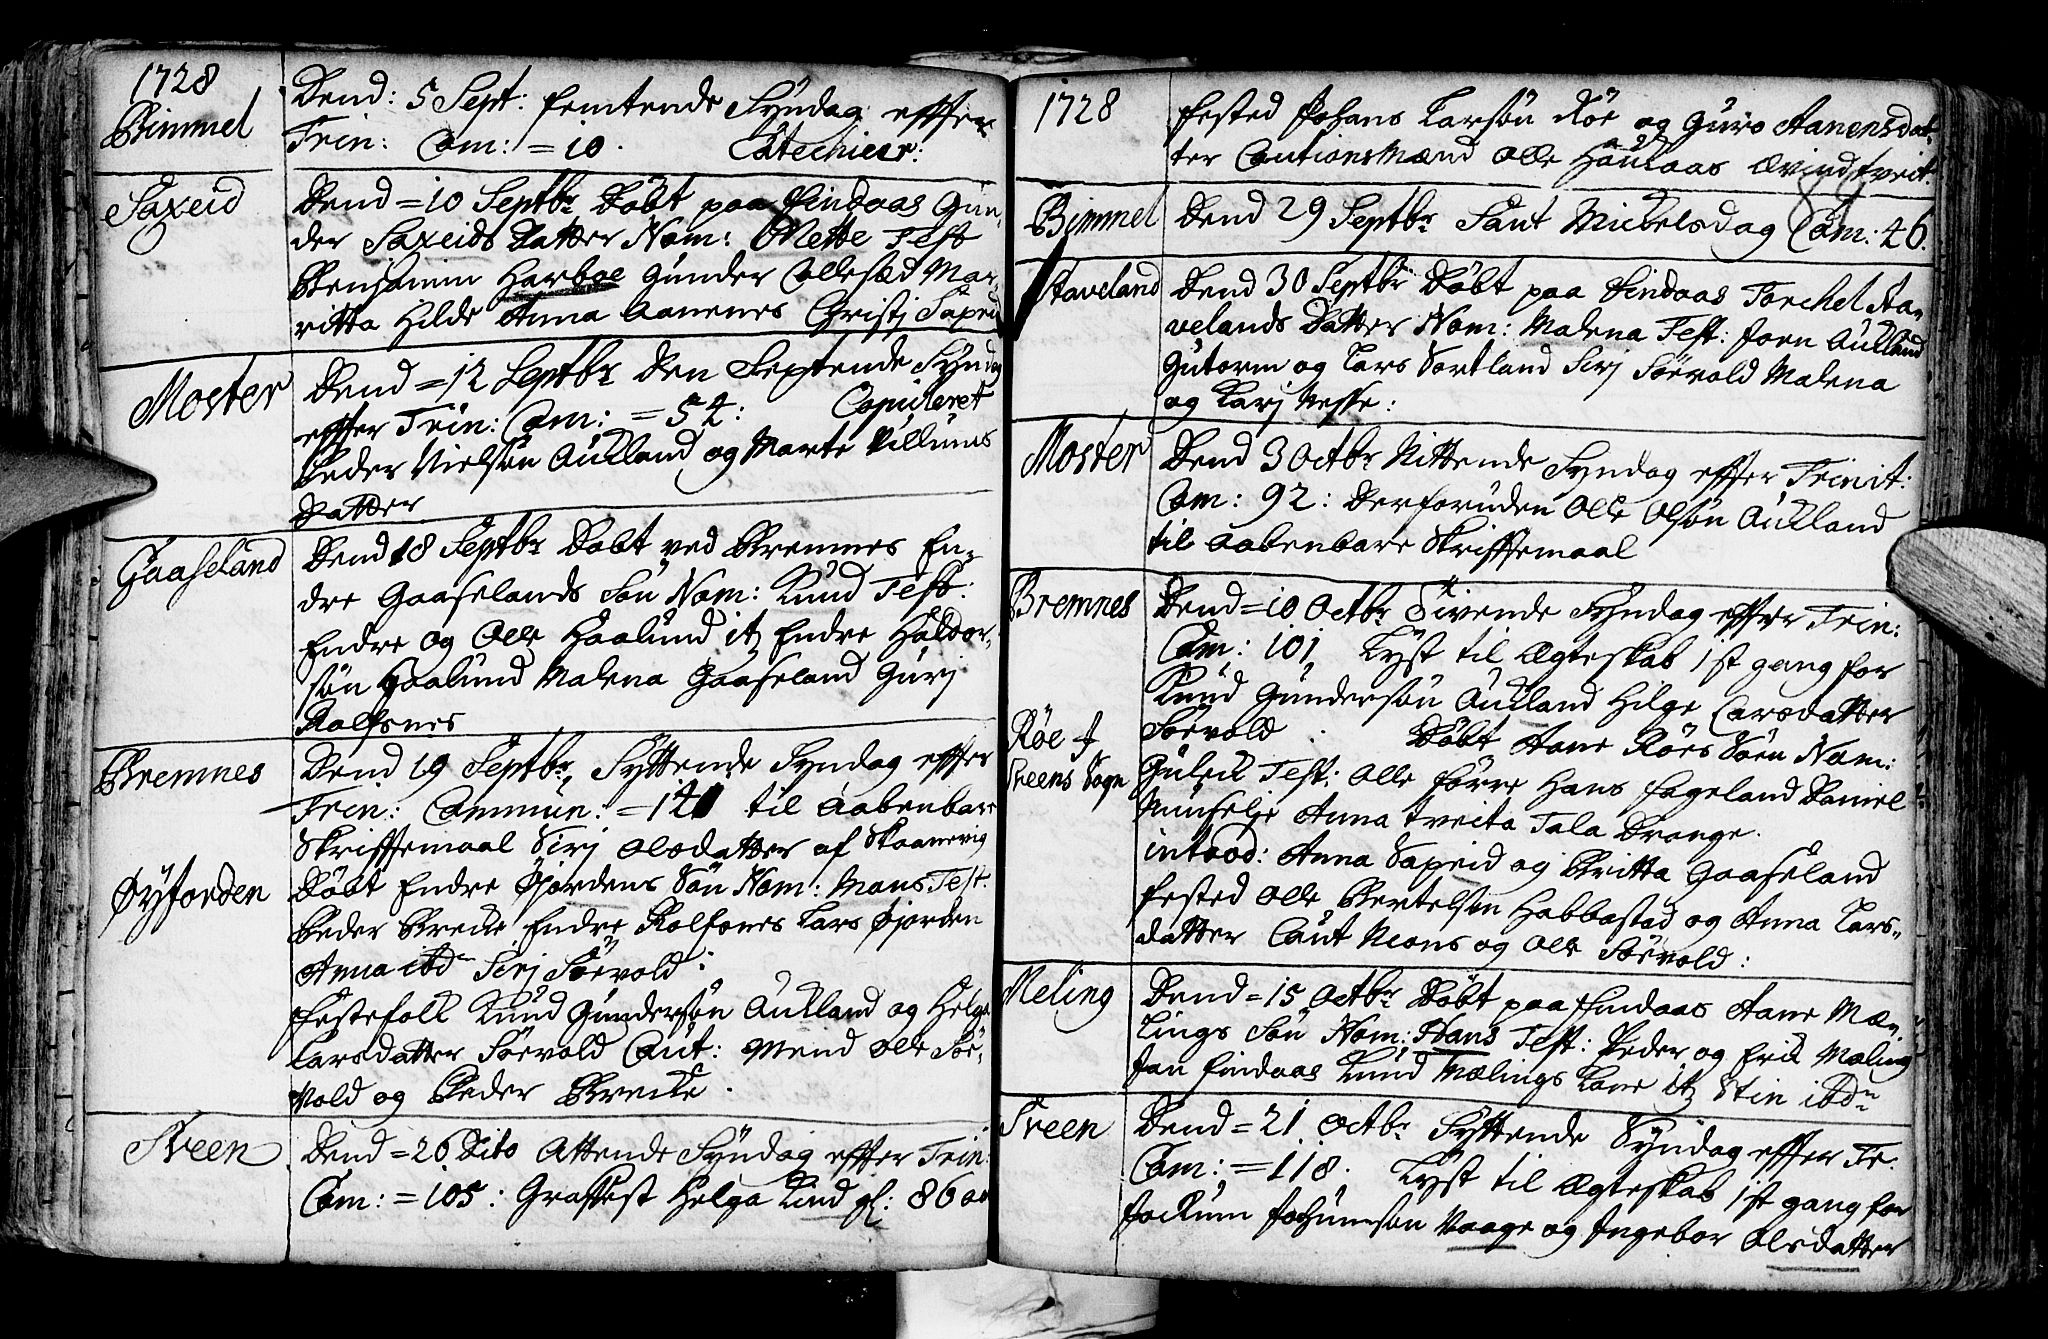 1728
Bimmel
Dend: 5 Sept: femtende Syndag effter
Trin: Com: = 10. Catechiser:
Saxeid
Dend = 10 Septbr Döbt paa Findaas Gun,,
der Saxeids Datter Nom: Mette Test
Benjamin Harboe Gunder Ollesæd Mar,,
ritta Hilde Anna Aanenes Christj Saxeid
Moster
Dend = 12 Septbr Den Sextende Syndag
effter Trin: Com: = 54: Copuleret
Peder Nielsön Aukland og Marte Villums
Datter
Gaaseland
Dend 18 Septbr Döbt ved Bremnes En,,
dre Gaaselands Sön Nom: Knud Test:
Endre og Olle Haalund it Endre Haldor,,
sön Haalund Malena Gaaseland Gurj
Rolfsnes
Bremnes
Dend 19 Septbr Syttende Syndag effter
Trin: Commun: = 141 til Aabenbare
Skrifftemaal Sirj Olsdatter af Skaanevig
Øyjorden
Döbt Endre Øjordens Sön Nom: Mans Test:
Peder Brecke Endre Rolfsnes Lars Øjorden
Anna ibdn Sirj Söevold:
Festefolk Knud Gundersön Aukland og Helge
Larsdatter Söevold Caut: Mend Olle Söe,,
vold og Peder Brecke.
Sveen
Dend = 26 Dito Attende Syndag effter Trin:
Com: = 105: Graffest Helga Lind gl: 86 aar
1728
fested Johans Larsön Röe og Guro Aanensdat,,
ter Cautions Mænd Olle Haulaas Ævindtveit.
Bimmel
Dend 29 Septbr Sant Michelsdag Com: 46.
Staveland
Dend 30 Septbr Döbt paa Findaas Torchel Sta,,
velands Datter Nom: Malena Test: Joen Aukland
Gutorm og Lars Vortland Sirj Söevold Malena
og Karj Vespe:
Moster
Dend 3 Octbr Nittende Syndag effter Trinit:
Com: 92: Desforuden Olle Olsön Aukland
til Aabenbare Skrifftemaal
Bremnes
Dend = 10 Octbr Tivende Syndag effter Trin:
Com: 101 Lyst til Ægteskab 1st gang for
Knud Gundersön Aukland Hilge Larsdatter
Röe J
Sveens Sogn
Söevold: Döbt Aane Röes Sön Nom:
Guleck Test: Olle Förre Hans Fageland Daniel
Munselje Anna Tveita Tala Drange.
introd: Anna Saxeid og Britta Gaaseland
fested Olle Bertelsön Habbestad og Anna Lars,,
datter Caut Mons og Olle Söevold:
Meling
Dend = 15 Octbr Döbt paa Findaas Aane Mæ,,
lings Sön Nom: Hans Test: Peder og Erik Mæling
Jan Findaas Knud Mælings Kone it Stin ibdn
Sveen
Dend = 21 Octbr Syttende Syndag effter Tr.
Com: = 118. Lyst til Ægteskab 1st gang for
Jockum Jochumsön Vaage og Ingebor Olsdatter